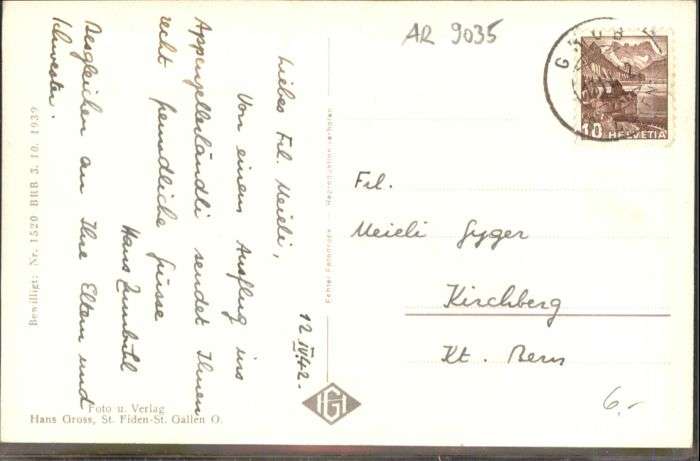 AR 9035
HELVETIA
10
12.IV.42.
Liebes Frl. Meieli,
Von einem Ausflug ins
Appenzellerländli sendet Ihnen
recht freundliche Grüsse
Hans Zumbühl
Desgleichen an Ihre Eltern und
Schwester.
Frl.
Meieli Gyger
Kirchberg
Kt. Bern
6.-
Bewilligt: Nr. 1520 BRB 3. 10. 1939
Foto u. Verlag
Hans Gross, St. Fiden-St. Gallen O.